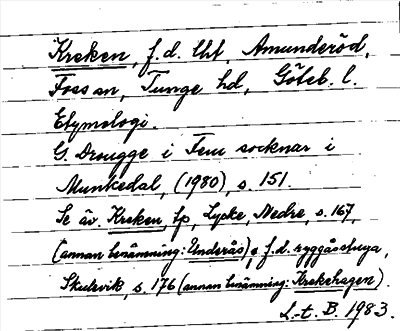 Kreken, f.d. lht, Amunderöd,
Foss sn, Tunge hd, Göteb. l.
Etymologi.
G. Drougge i Fem socknar i
Munkedal, (1980), s. 151.
Se äv. Kreken lp, Lycke, Nedre, s. 167,
(annan benämning: Underås) o f.d. ryggåsstuga,
Skulevik, s. 176 (annan benämning: Krekehagen).
L-t. B. 1983.